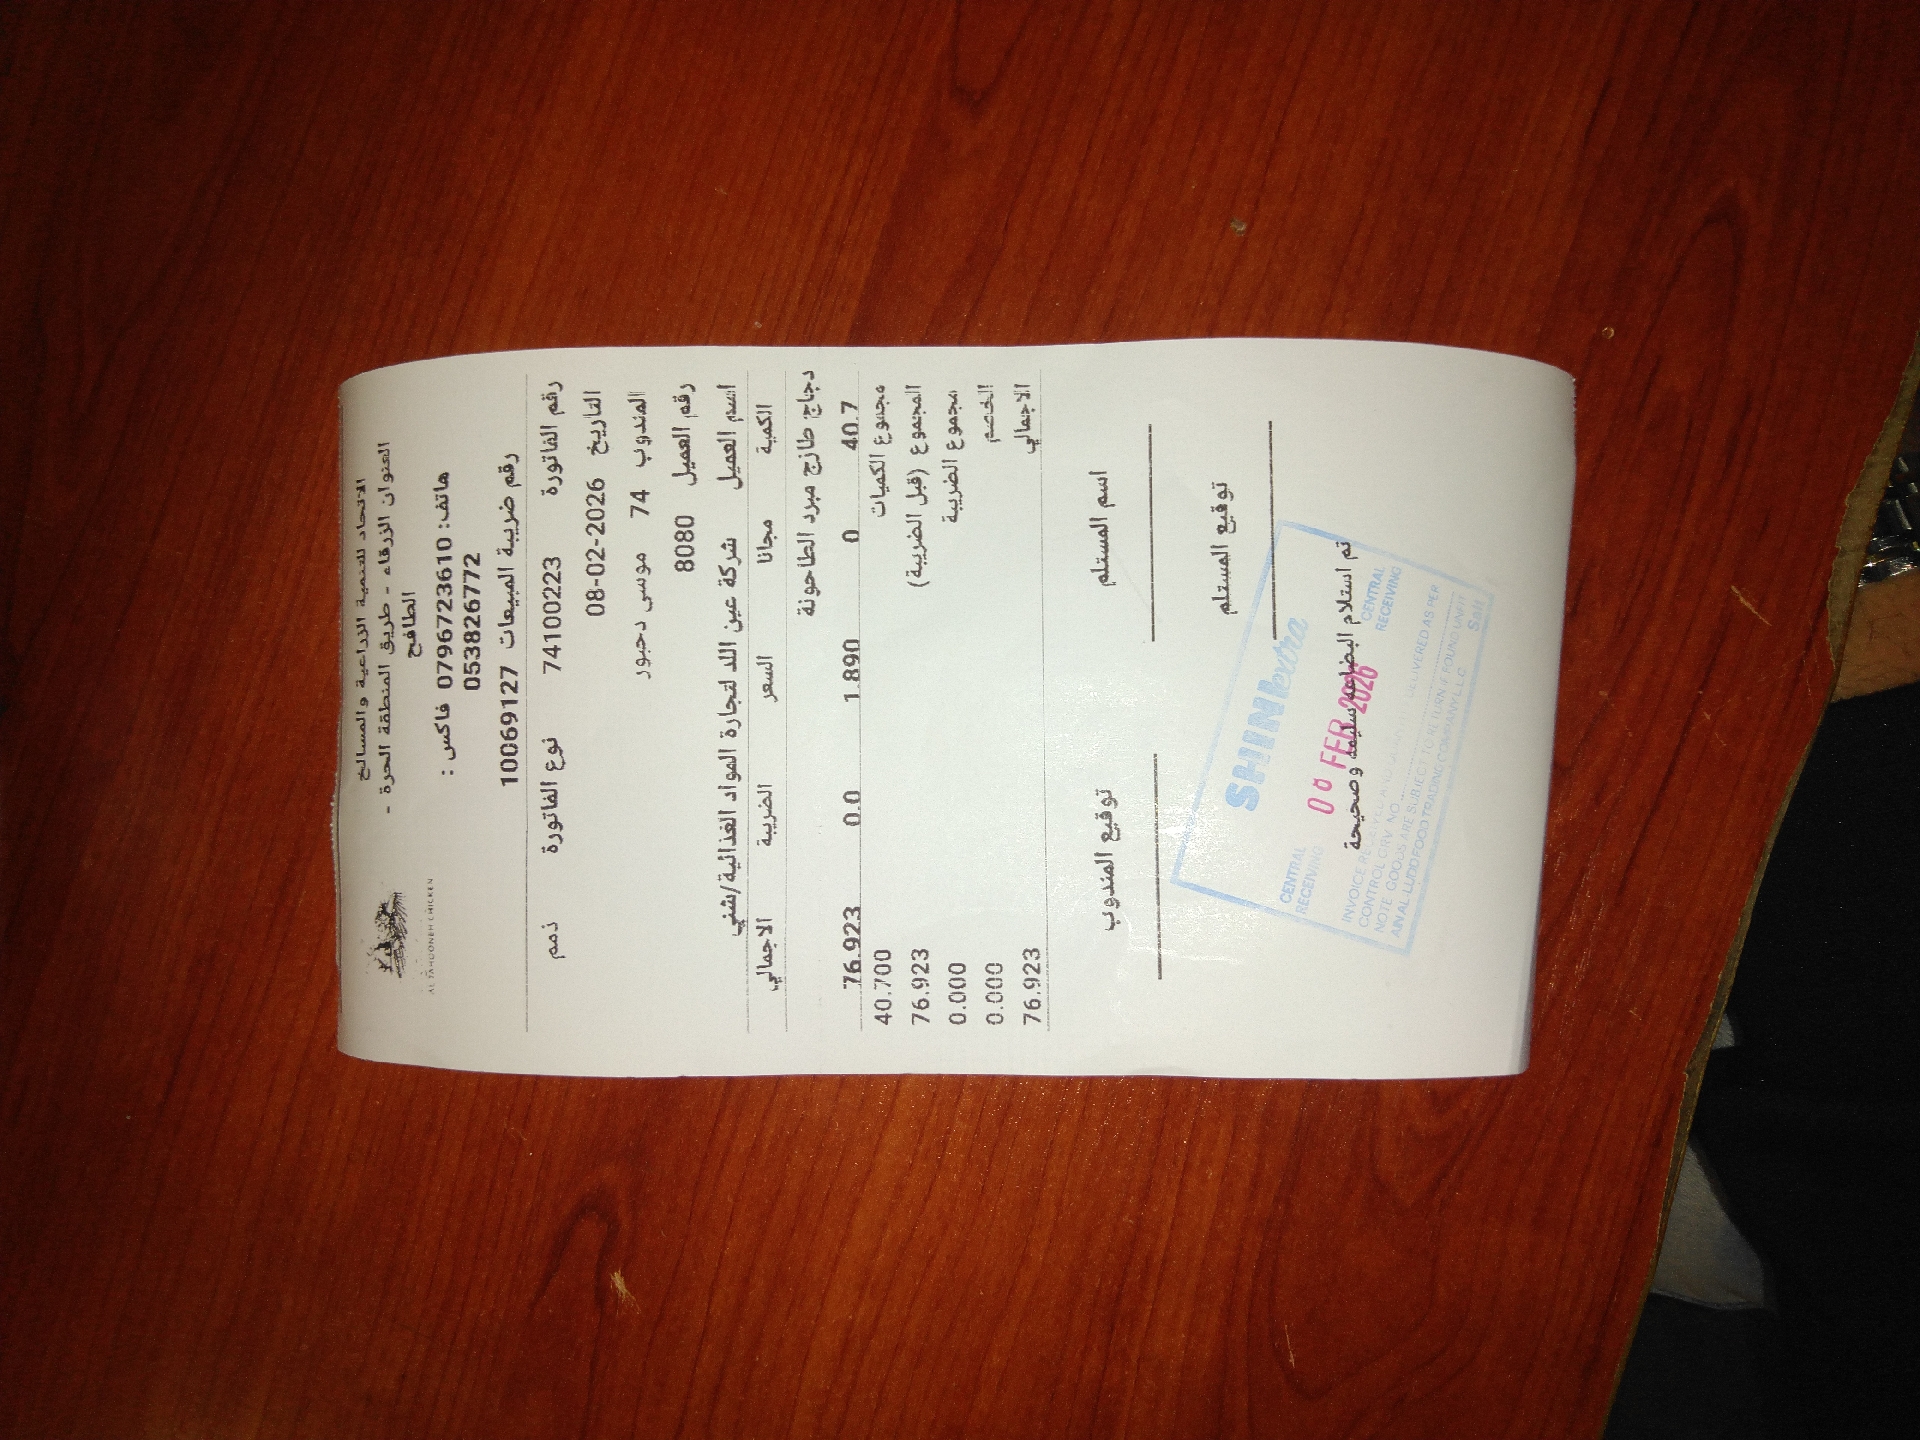 AL TAHOONEH CHICKEN
الاتحاد للتنمية الزراعية والمسالخ
العنوان الزرقاء - طريق المنطقة الحرة -
الطافح
هاتف: 0796723610 فاكس :
053826772
رقم ضريبة المبيعات 10069127
رقم الفاتورة 74100223 نوع الفاتورة ذمم
التاريخ 08-02-2026
المندوب 74 موسى دحبور
رقم العميل 8080
اسم العميل شركة عين اللد لتجارة المواد الغذائية/شني
الكمية مجانا السعر الضريبة الاجمالي
دجاج طازج مبرد الطاحونة
40.7 0 1.890 0.0 76.923
مجموع الكميات 40.700
المجموع (قبل الضريبة) 76.923
مجموع الضريبة 0.000
الخصم 0.000
الاجمالي 76.923
اسم المستلم توقيع المندوب
توقيع المستلم
SHINI extra
CENTRAL RECEIVING
CENTRAL RECEIVING
FEB 2026
تم استلام البضاعة سليمة وصحيحة
INVOICE DELIVERED AS PER
CONTROL GRV. NO.
NOTE GOODS ARE SUBJECT TO RETURN IF FOUND UNFIT
AIN AL LUDD FOOD TRADING COMPANY L.L.C